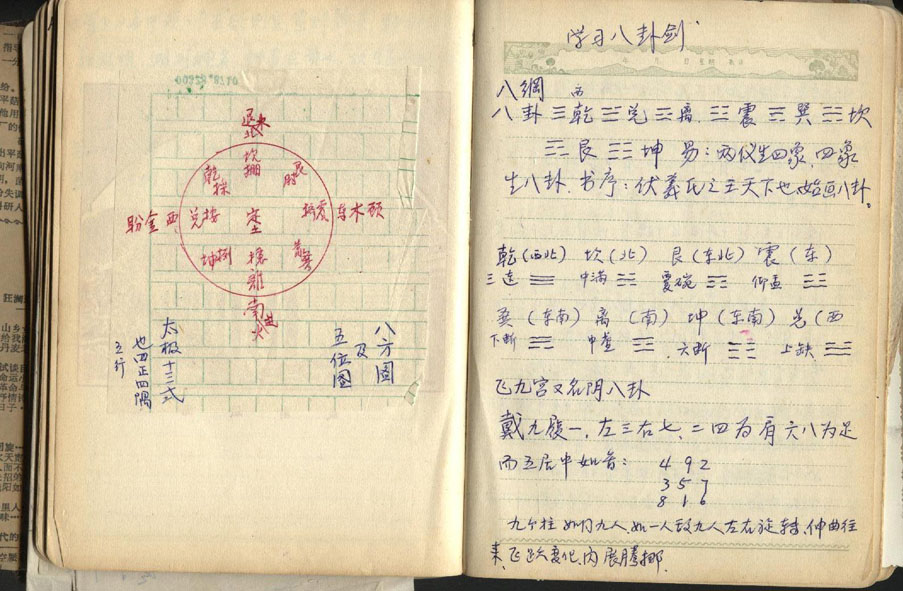 学习八卦剑
八綱 西
八卦 ☰乾 ☱兑 ☲离 ☳震 ☴巽 ☵坎
☶艮 ☷坤 易：两仪生四象，四象
生八卦，书序：伏羲氏之王天下也，始画八卦。
乾（西北） 坎（北） 艮（东北） 震（东）
三连 ☰ 中满 ☵ 覆碗 ☶ 仰盂 ☳
巽（东南） 离（南） 坤（东南） 兑（西
下断 ☴ 中虚 ☲ 六断 ☷ 上缺 ☱
飞九宫又名阴八卦
戴九履一，左三右七，二四为肩六八为足
而五居中如音：
4 9 2
3 5 7
8 1 6
九个柱如同九人，如一人敌九人左右旋转，伸曲往
来，飞跃变化，内展腾挪
00328*8210
坎
掤
乾
採
艮
肘
盼金西 兑按 定土 震 东木顾
坤挒
離
南
火
八方图
及
五位图
太极十三式
也四正四隅
五行